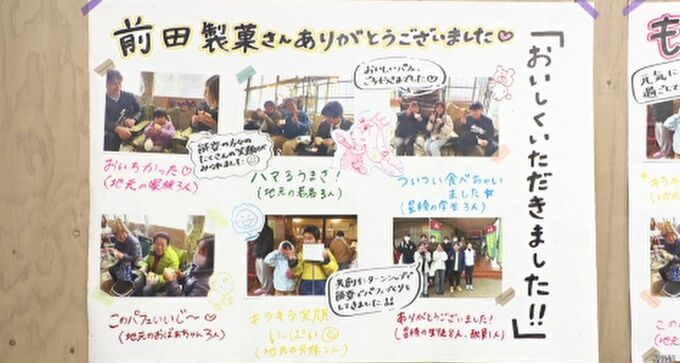 前田製菓さんありがとうございました♡
「おいしくいただきました!!」
おいしいパフェ、
ごちそうさまでした♡
能登の方々の
たくさんの笑顔が
みられました
おいちかった♡
(地元の家族3人)
ハマるうまさ!
(地元の若者3人)
ついつい食べちゃい
ました☆
(学生3人)
このパフェいいじ〜♡
(地元のおばあちゃん3人)
キラキラ笑顔
いっぱい
(地元の兄妹2人)
インターンシップで
能登でパフェづくりを
してきました
ありがとうございました!
(生徒8人、教員1人)
も
元気に
過ごして
キラキ
(地元